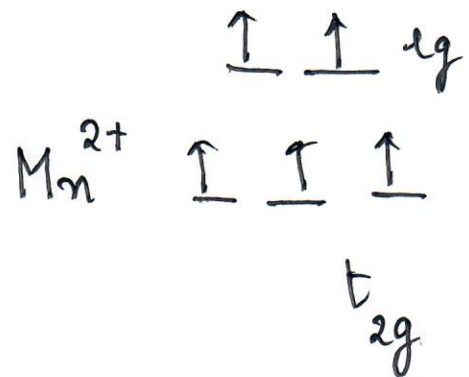 eg
Mn²⁺
t₂g